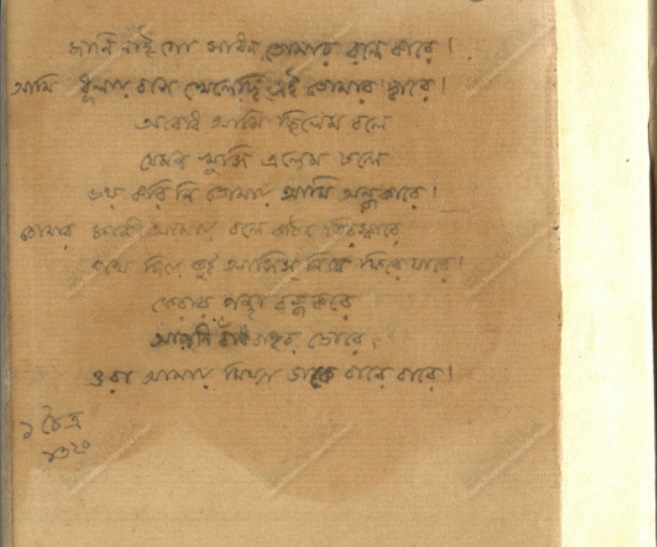 জানি নাই গো সাধন তোমার বলে কারে।
আমি ধুলায় বসে খেলেছি এই তোমার দ্বারে।
অবোধ আমি ছিলেম বলে
যেমন খুসি এলেম চলে
ভয় করি নি তোমায় আমি অন্ধকারে।
তোমার জ্ঞানী আমায় বলে কঠিন তিরস্কারে
পথ দিয়ে তুই আসিস নি যে ফিরে যারে।
ফেরার পন্থা বন্ধ করে
আপনি বাঁধ বাহুর ডোরে,
ওরা আমায় মিথ্যা ডাকে বারে বারে।
১ চৈত্র
১৩২০